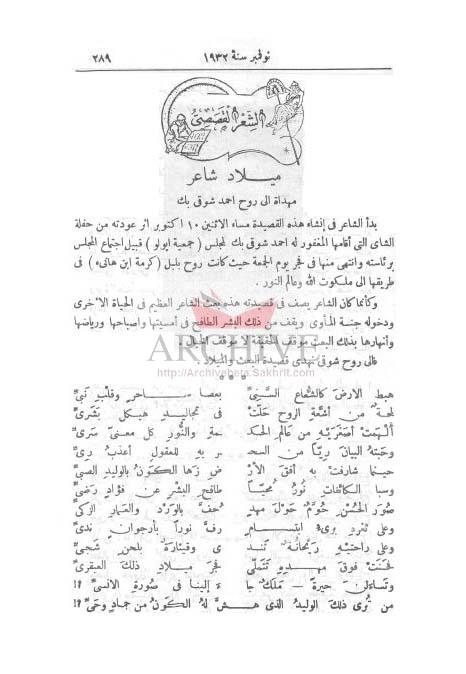 نوفمبر سنة ١٩٣٢
٢٨٩
الشعر القصصى
ميلاد شاعر
مهداة الى روح احمد شوقى بك
بدأ الشاعر فى إنشاء هذه القصيدة مساء الاثنين ١٠ اكتوبر اثر عودته من حفلة
الشاى التى أقامها المغفور له احمد شوقى بك لمجلس ( جمعية ابولو ) قبيل اجتماع المجلس
برئاسته وانتهى منها فى فجر يوم الجمعة حيث كانت روح بلبل ( كرمة ابن هانىء ) فى
طريقها الى ملكوت الله وعالم النور .
وكأنما كان الشاعر يصف فى قصيدته هذه بعث الشاعر العظيم فى الحياة الاخرى
ودخوله جنة المأوى ويقف من ذلك البشر الطافح فى أمسيتها واصباحها ورياضها
وأنهارها بذلك البعث موقف الحقيقة لا موقف الخيال
فالى روح شوقى نهدى قصيدة البعث والميلاد .
ARCHIVE
http://Archivebeta.Sakhrit.com
***
هبط الارض كالشعاع السنىِّ بعصا ساحر وقلب نبىِّ
لمحة من أشعة الروح حلَّت فى تجاليد هيكل بشرىِّ
ألهمت أصغريه من عالم الحكـ ـمة والنور كل معنى سرىِّ
وحبته البيان ريّا من السحـ ـر به للعقول أعذب رىِّ
حينما شارفت به أفق الأر ض زها الكون بالوليد الصبىِّ
وسبا الكائنات نور محيّا طافح البشر عن فؤاد رضىِّ
صور الحسن حوّم حول مهد حف بالورد والعمار الزكىِّ
وعلى ثغره يرى ابتسام رف نورا بأرجوان ندىِّ
وعلى راحتيه ريحانة تنـ ـدى وقيثارة بلحن شجىِّ
فحنت فوق مهده تتملى فجر ميلاد ذلك العبقرىِّ
وتساءلن حيرة – ملك جا ء إلينا فى صورة الانسىِّ ؟!
من تُرى ذلك الوليد الذى هشَّ له الكون من جماد وحىِّ ؟!